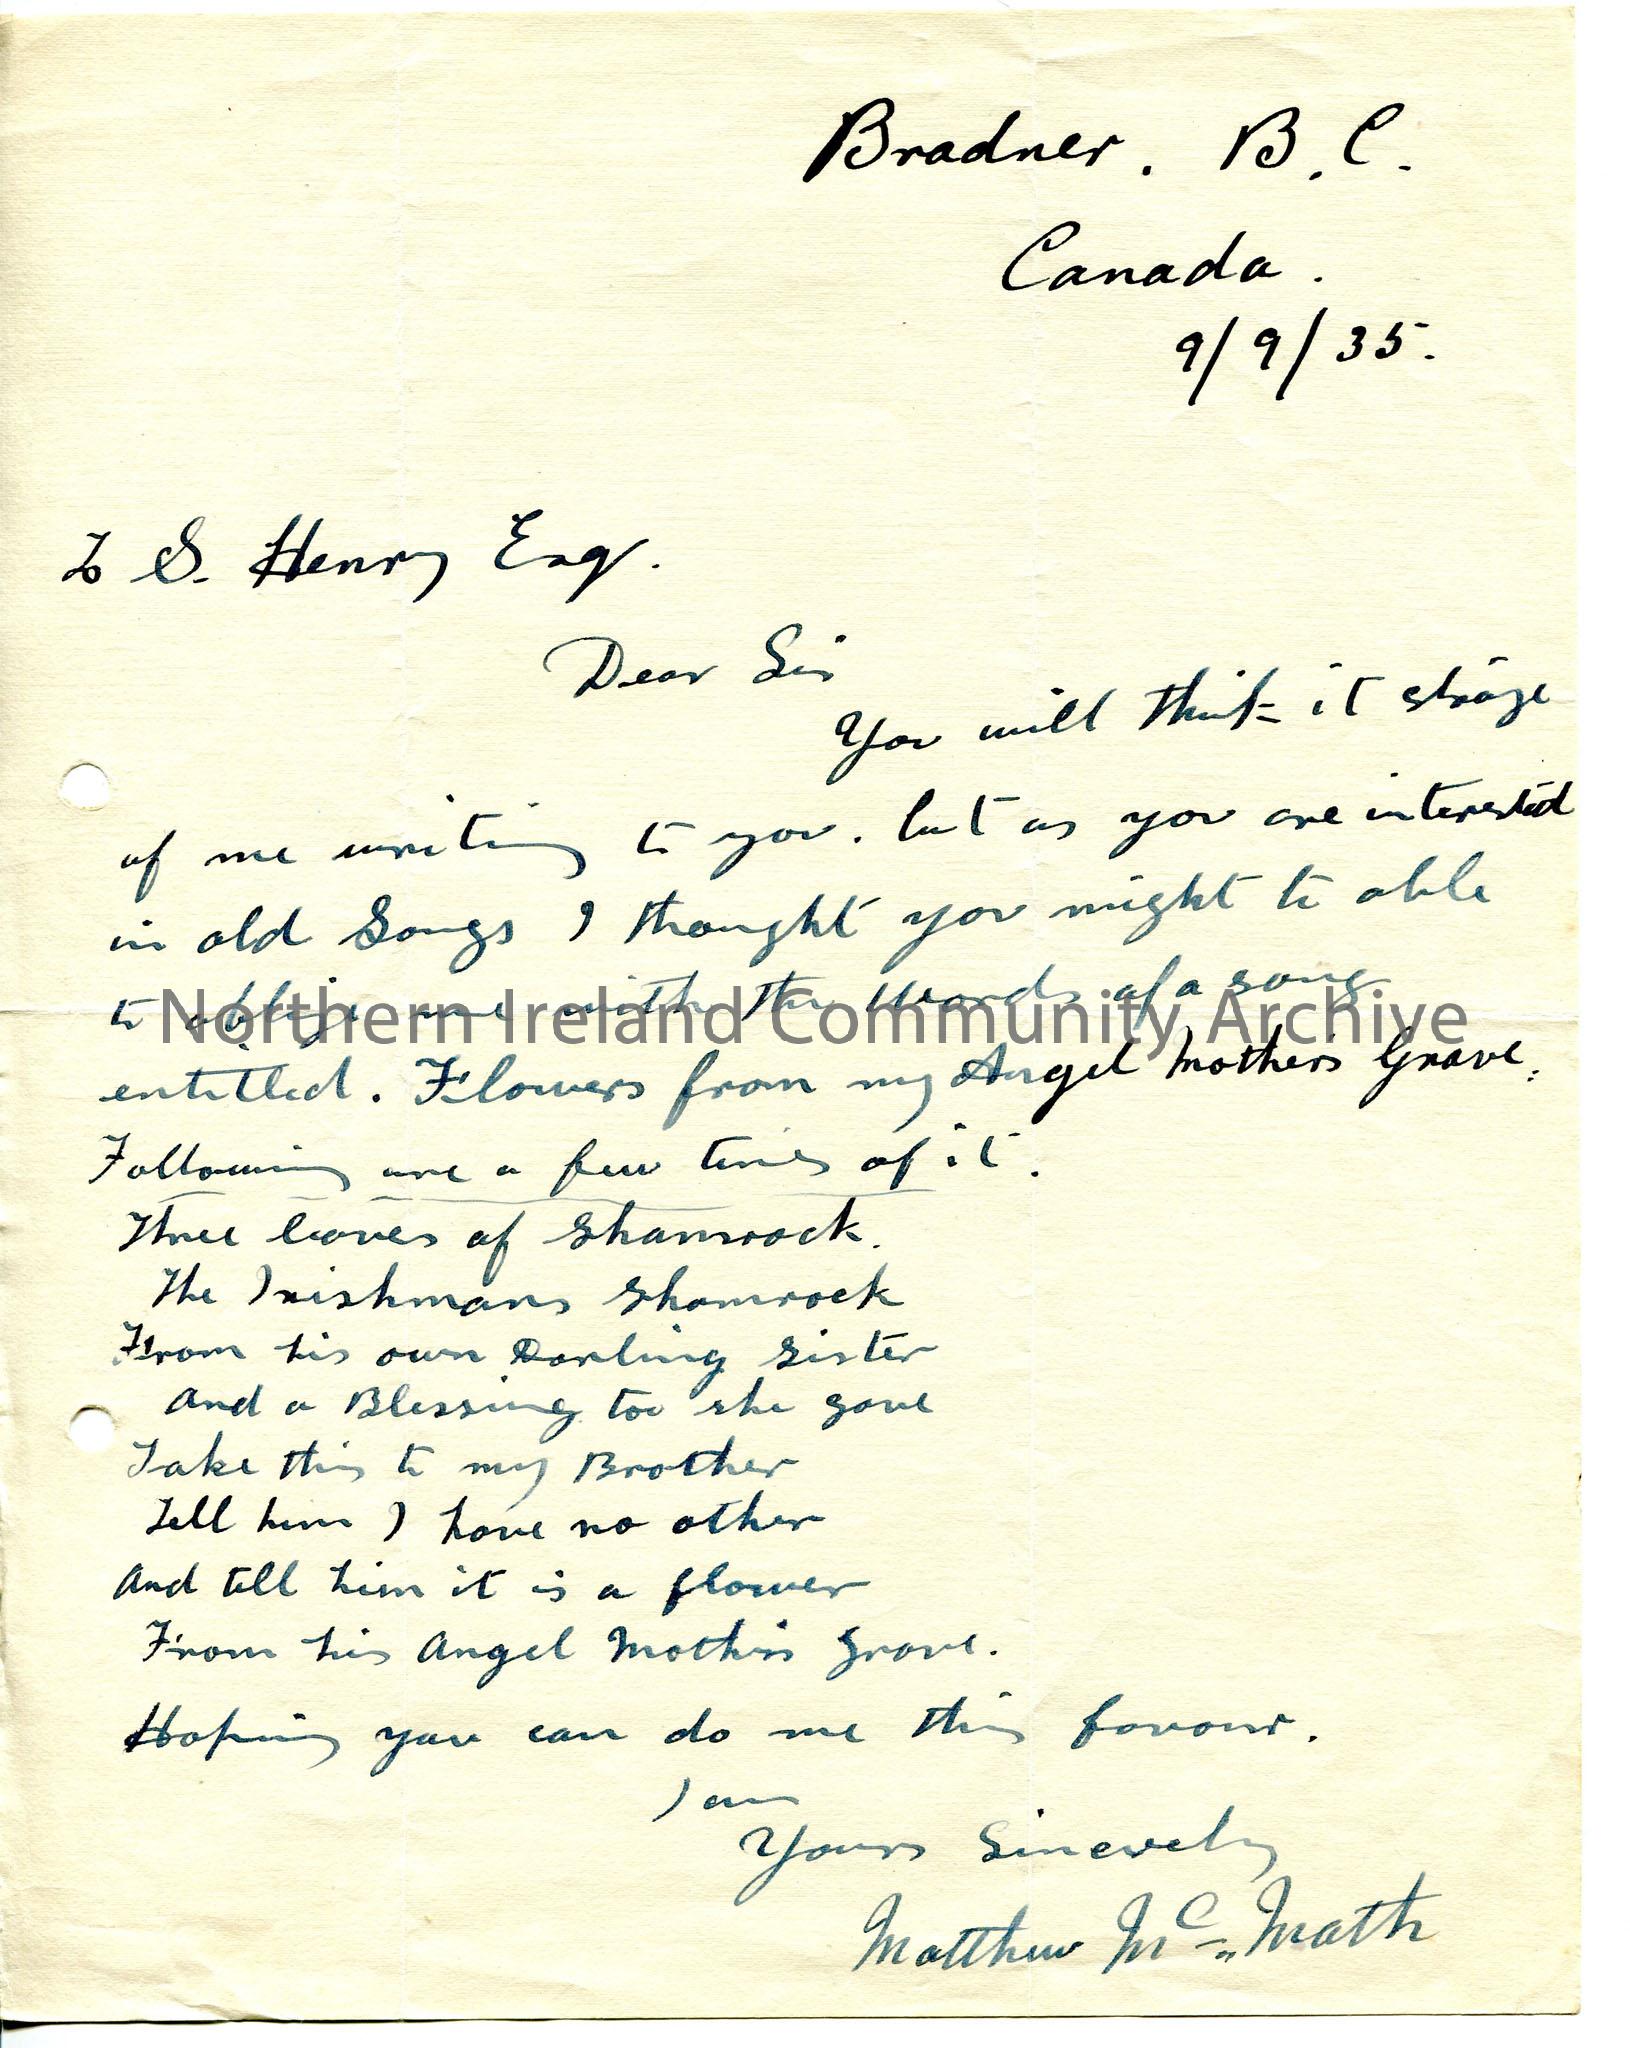 Bradner. B.C.
Canada.
9/9/35.
To S. Henry Esq.
Dear Sir
You will think it strange
of me writing to you. but as you are interested
in old Songs I thought you might to able
to oblige me with the Words of a song
Northern Ireland Community Archive
entitled. Flowers from my Angel Mothers Grave.
Following are a few lines of it.
Three leaves of Shamrock.
The Irishmans Shamrock
From his own Darling Sister
And a Blessing too she gave
Take this to my Brother
Tell him I have no other
And tell him it is a flower
From his Angel Mothers Grave.
Hoping you can do me this favour.
I am
Yours Sincerely
Matthew McMath